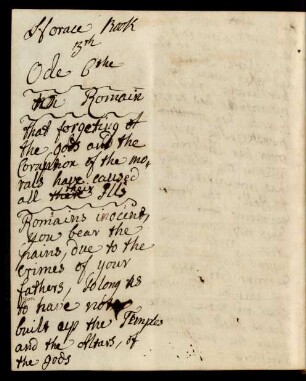 Horace Book
13th
Ode 6the
Romain
that forgeting of
the gods and the
Coraption of the mo-
rals have caused
all their Ills
Romains inocent,
you bear the
pains, due to the
Crimes of your
fathers, So long As
to have not
built up the Temples
and the Altars, of
the gods